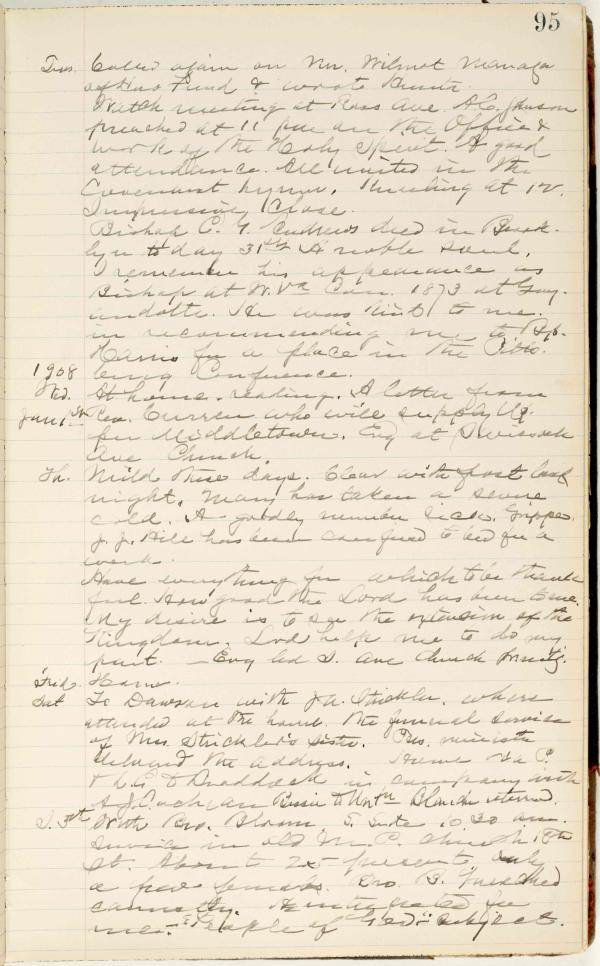 95
Tues. Called again on Mr. Wilmot Manager
of Hus Fund & wrote
Watch meeting at Ross Ave. A.C. Johnson
preached at 11 pm on the Office &
work of the Holy Spirit. A good
attendance. All united in the
Covenant hymn, kneeling at 12.
Impressive close.
Bishop E. G. Andrews died in Brook-
lyn to day 31st A noble soul.
I remember his appearance as
Bishop at W. Va Con. 1873 at Guy-
andotte. He was kind to me.
in recommending me to Bp.
Harris for a place in the Pitts-
1908 burg Conference.
Wed. At home. reading. A letter from
Jan 1st Rev. Curren who will supply
for Middletown. Evg at Swissvale
Ave Church.
Th. Mild these days. Clear with frost last
night. Mary has taken a severe
cold. A goodly number sick. Grippe.
J. J. Hill has been confined to bed for a
week.
Have everything for which to be thank-
ful. How good the Lord has been to me.
My desire is to see the extension of the
Kingdom. Lord help me to do my
part. — Evg led S. Ave church
Frid. Home.
Sat To Dawson with J.A. Stickler. where
attended at the home the funeral service
of Mrs. Strickler's sister. Pres. minister
delivered the address. Home via P.
& L.E. to Braddock in company with
A.J. Cochran Bessie to Blanche returned.
S. 5th With Bro. Bloom 10 30 am.
Service in old M.P. church 18th
St. About 25 present, only
a few females. Bro. B. preached
earnestly.
men. "People of God" subject.